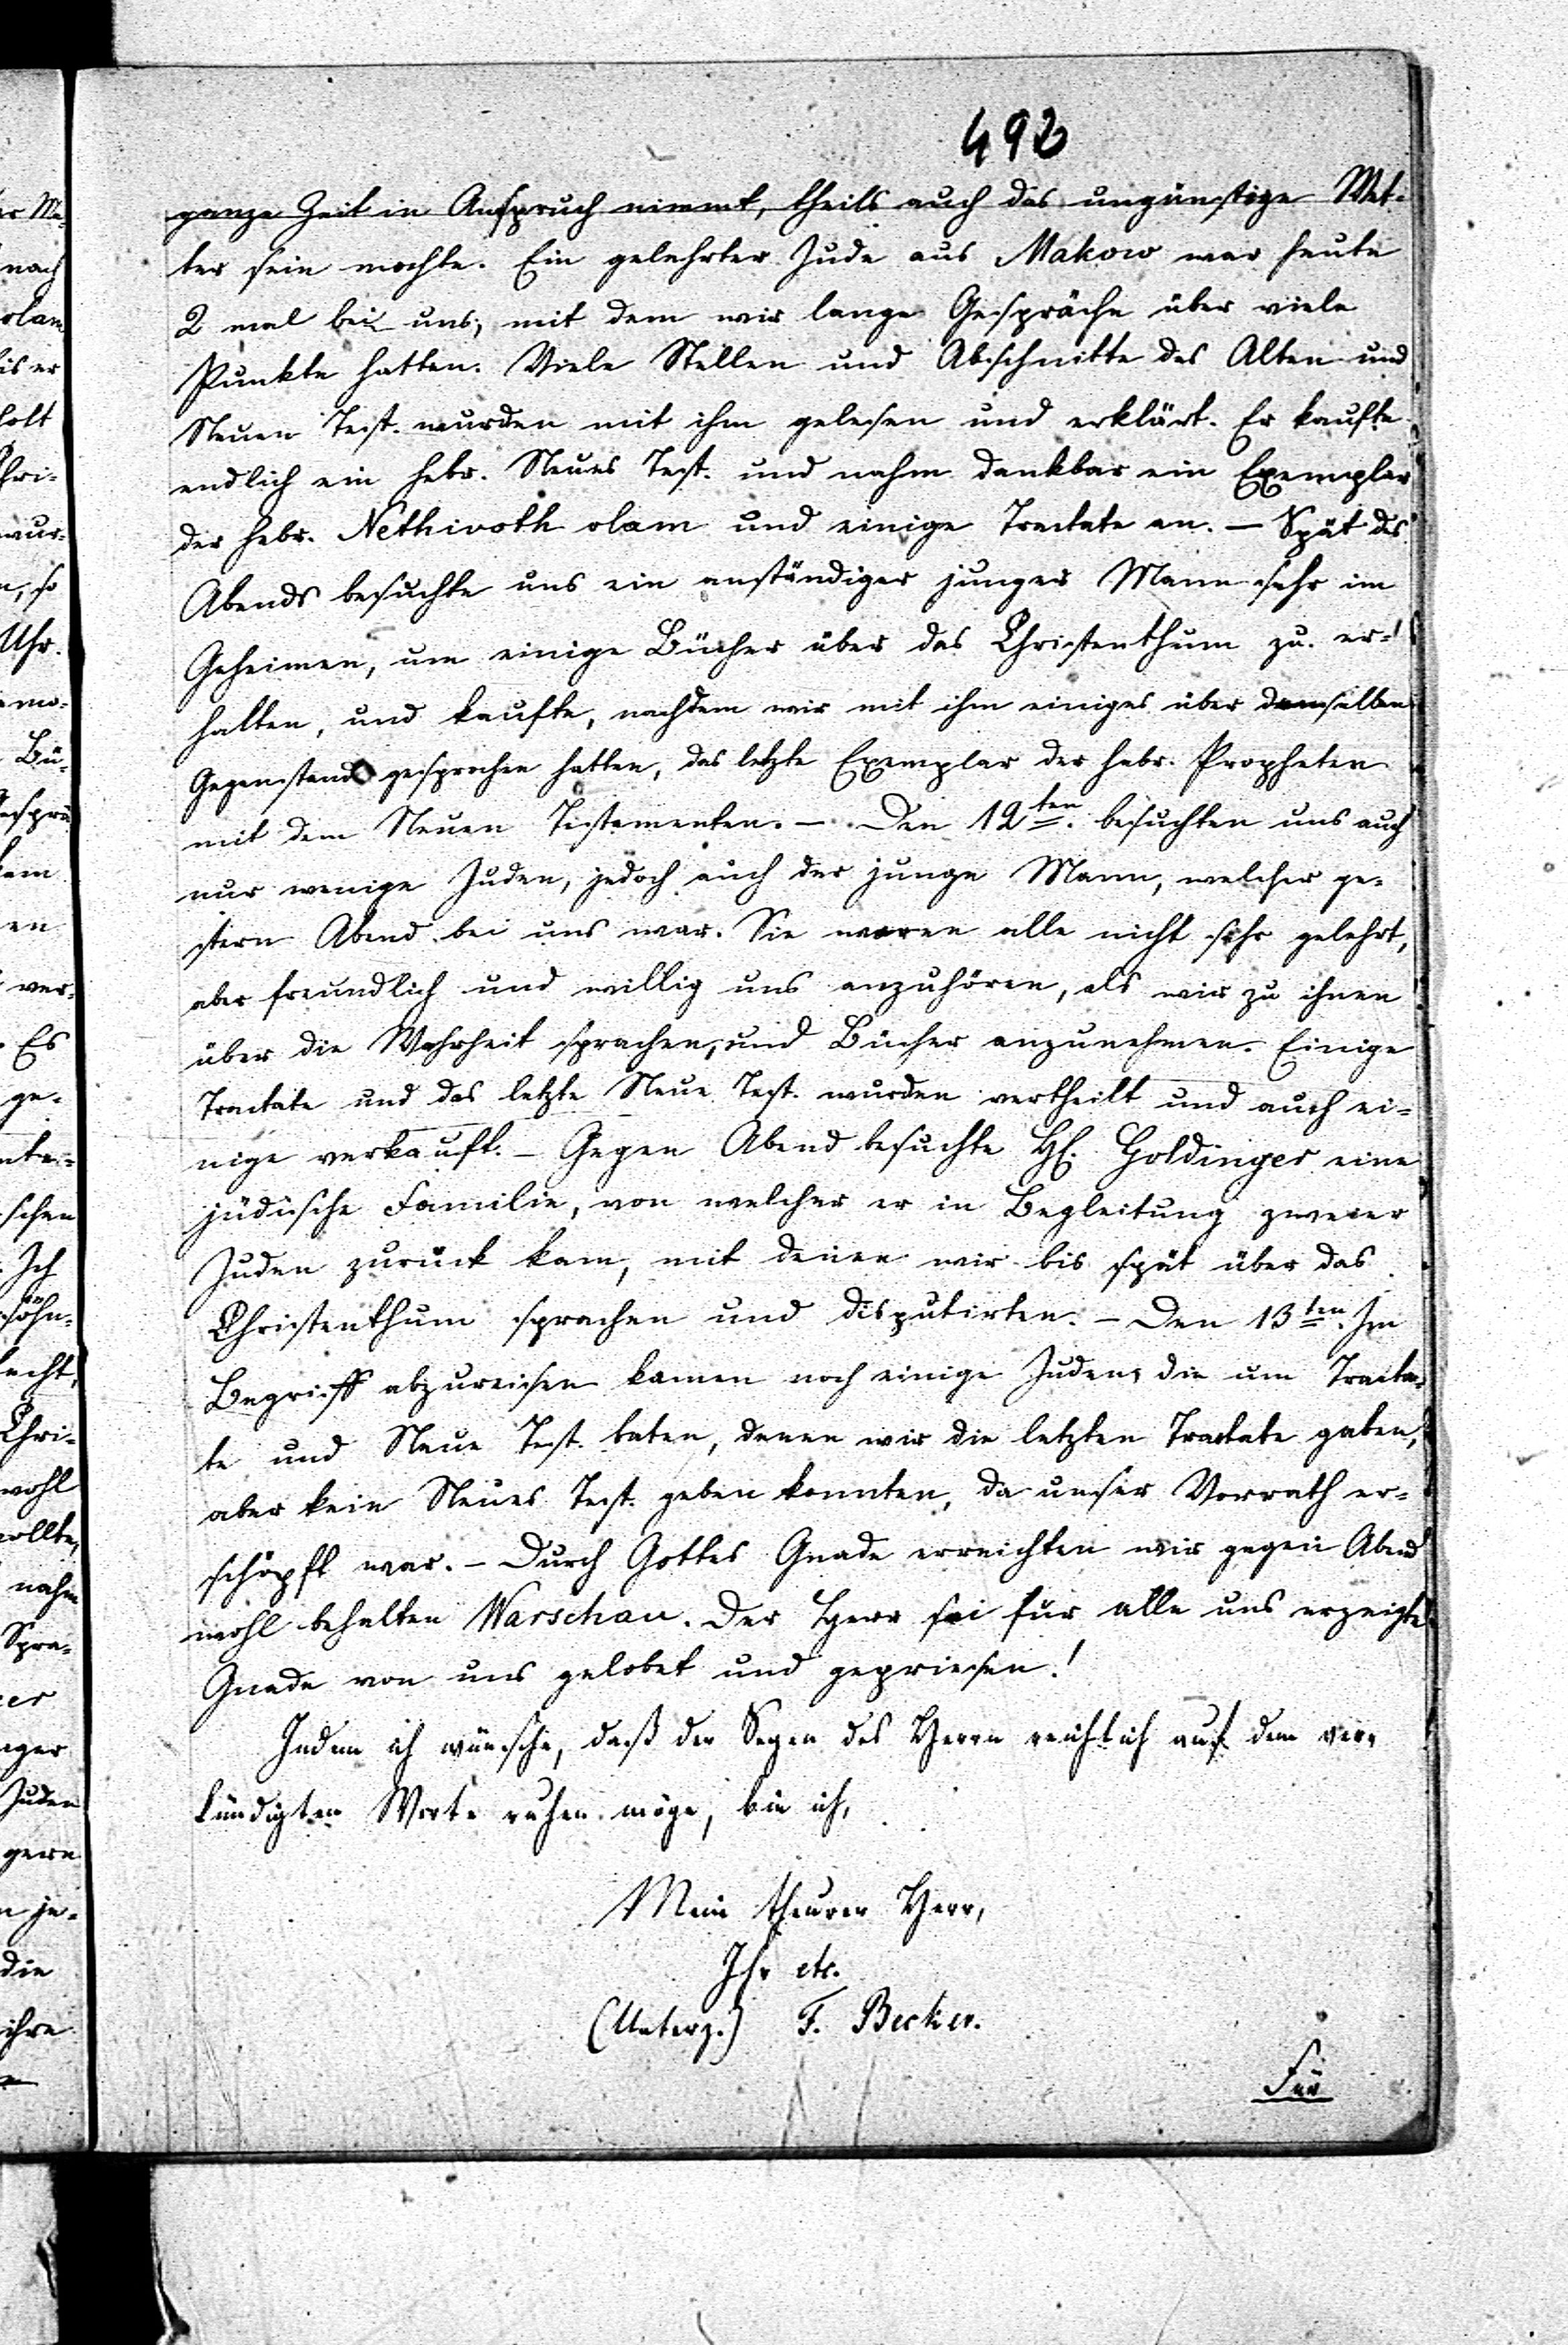 492
ganze Zeit in Anspruch nimmt, theils auch das ungünstige Wet-
ter sein mochte. Ein gelehrter Jude aus Makow war heute
2 mal bei uns, mit dem wir lange Gespräche über viele
Punkte hatten. Viele Stellen und Abschnitte des Alten und
Neuen Test. wurden mit ihm gelesen und erklärt. Er kaufte
endlich ein hebr. Neues Test. und nahm dankbar ein Exemplar
der hebr. Nethivoth olam und einige Tractate an. — Spät des
Abends besuchte uns ein anständiger junger Mann sehr im
Geheimen, um einige Bücher über das Christenthum zu er-
halten, und kaufte, nachdem wir mit ihm einiges über denselben
Gegenstand gesprochen hatten, das letzte Exemplar der hebr. Propheten
mit dem Neuen Testamenten. — Den 12ten. besuchten uns auch
nur wenige Juden, jedoch auch der junge Mann, welcher ge-
stern Abend bei uns war. Sie waren alle nicht sehr gelehrt,
aber freundlich und willig uns anzuhören, als wir zu ihnen
über die Wahrheit sprachen, und Bücher anzunehmen. Einige
Tractate und das letzte Neue Test. wurden vertheilt und auch ei-
nige verkauft. — Gegen Abend besuchte H. Goldinger eine
jüdische Familie, von welcher er in Begleitung zweier
Juden zurück kam, mit denen wir bis spät über das
Christenthum sprachen und disputirten. — Den 13ten. Im
Begriff abzureisen kamen noch einige Juden, die um Tracta-
te und Neue Test. baten, denen wir die letzten Tractate gaben,
aber kein Neues Test. geben konnten, da unser Vorrath er-
schöpft war. — Durch Gottes Gnade erreichten wir gegen Abend
wohl behalten Warschau. Der Herr sei für alle uns erzeigte
Gnade von uns gelobet und gepriesen!
Indem ich wünsche, daß der Segen des Herrn reichlich auf dem ver-
kündigten Worte ruhen möge, bin ich,
Mein theurer Herr,
Ihr etc.
(Unterz.) F. Becker.
Für